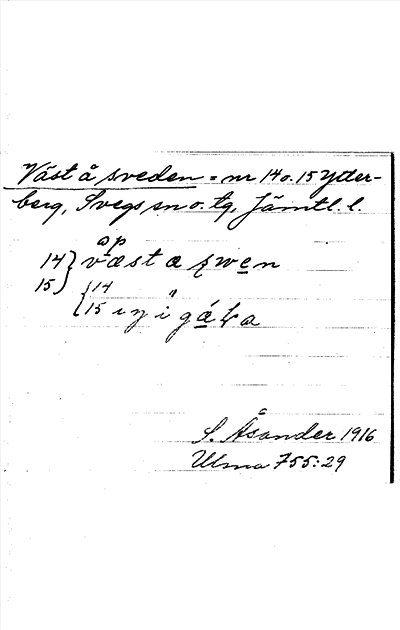 Väst å sveden = nr 14 o. 15 Ytter-
berg, Svegs sn o. tg, Jämtl. l.
op
14} væst a ʂwen
15} {14 "
{15 ıŋ i gá
S. Åsander 1916
Ulma 755:29